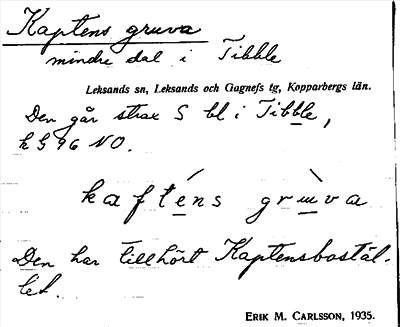 Kaptens gruva
mindre dal i Tibble
Leksands sn, Leksands och Gagnefs tg, Kopparbergs län.
Den går strax S bl i Tibble,
k S 96 NO.
kafténs grùva
Den har tillhört Kaptensbostäl-
let.
ERIK M. CARLSSON, 1935.